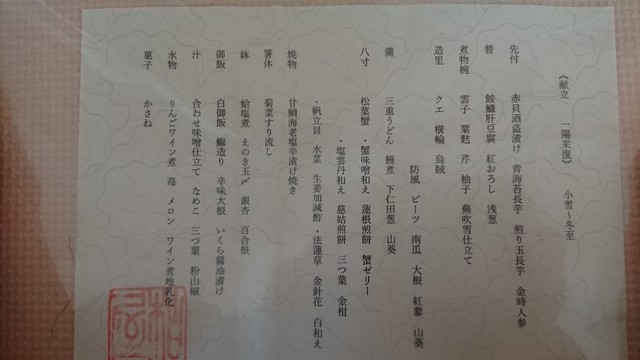 《献立　一陽来復》　小雪~冬至
先付　赤貝酒盗漬け　青海苔長芋　煎り玉長芋　金時人参
替　鮟鱇肝豆腐　紅おろし　浅葱
煮物椀　雲子　粟麩　芹　柚子　蕪吹雪仕立て
造里　クエ　横輪　烏賊
防風　ビーツ　南瓜　大根　紅蓼　山葵
羹　三重うどん　鰻煮　下仁田葱　山葵
八寸　松葉蟹　・蟹味噌和え　蓮根煎餅　蟹ゼリー
・塩雲丹和え　慈姑煎餅　三つ葉　金柑
・帆立貝　水菜　生姜加減酢　・法蓮草　金針花　白和え
焼物　甘鯛海老塩辛漬け焼き
箸休　菊菜すり流し
鉢　蛤塩煮　えのき玉〆　銀杏　百合根
御飯　白御飯　鰤造り　辛味大根　いくら醤油漬け
汁　合わせ味噌仕立て　なめこ　三つ葉　粉山椒
水物　りんごワイン煮　苺　メロン　ワイン煮地乳化
菓子　かさね